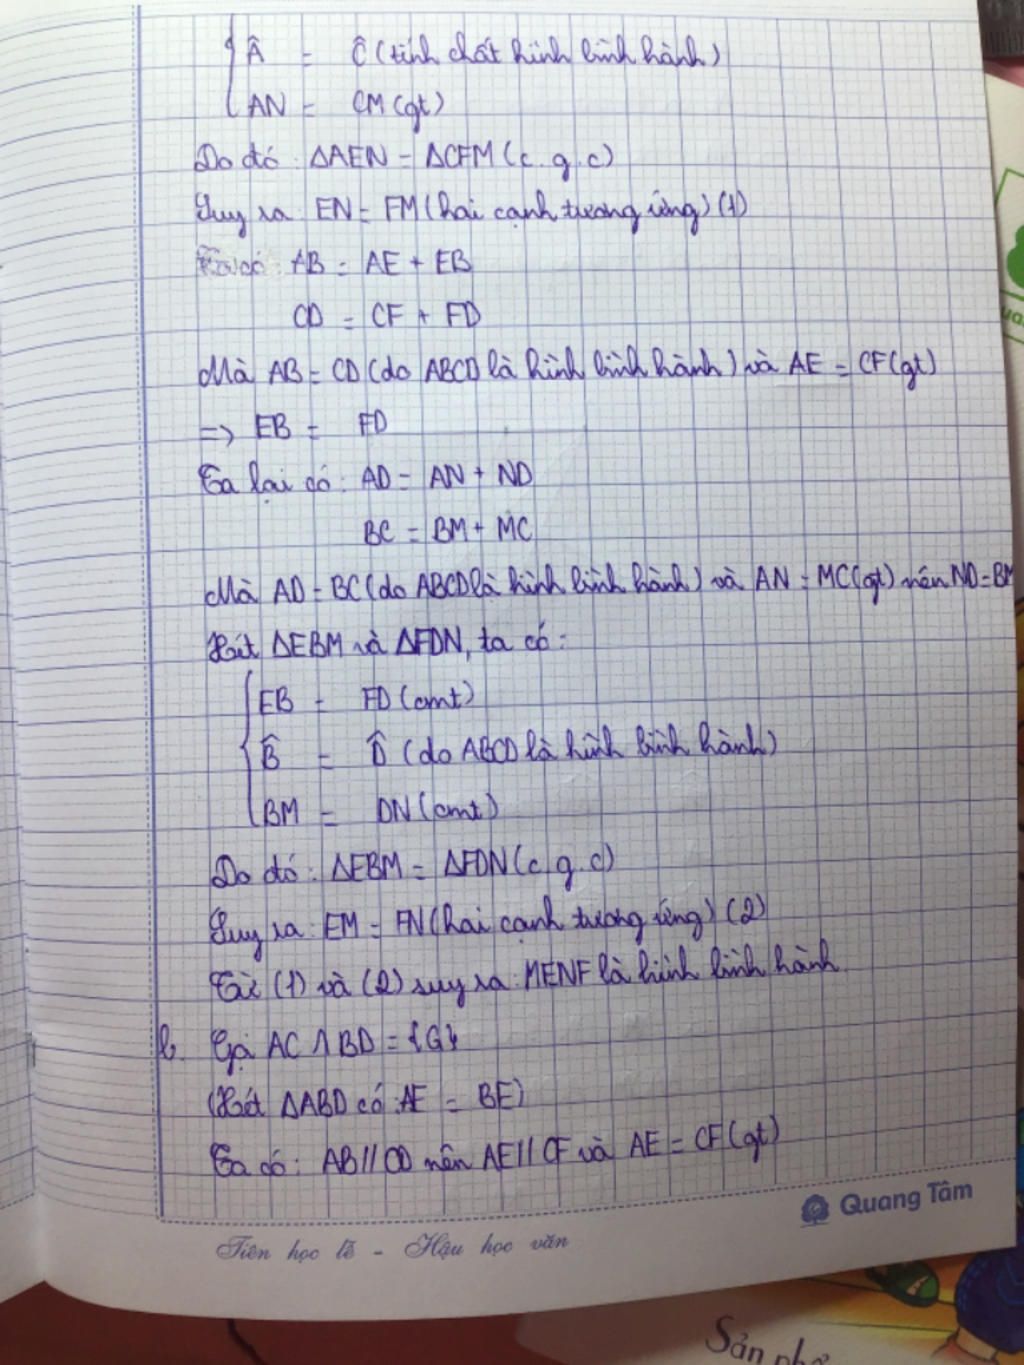 Â = Ĉ (tính chất hình bình hành)
AN = CM (gt)
Do đó: ΔAEN = ΔCFM (c.g.c)
Suy ra: EN = FM (hai cạnh tương ứng) (1)
Ta có: AB = AE + EB
CD = CF + FD
Mà AB = CD (do ABCD là hình bình hành) và AE = CF (gt)
=> EB = FD
Ta lại có: AD = AN + ND
BC = BM + MC
Mà AD = BC (do ABCD là hình bình hành) và AN = MC (gt) nên ND = BM
Xét ΔEBM và ΔFDN, ta có:
EB = FD (cmt)
B̂ = D̂ (do ABCD là hình bình hành)
BM = DN (cmt)
Do đó: ΔEBM = ΔFDN (c.g.c)
Suy ra: EM = FN (hai cạnh tương ứng) (2)
Từ (1) và (2) suy ra: MENF là hình bình hành
b. Gọi AC ∩ BD = {G}
(Xét ΔABD có: AE = BE)
Ta có: AB // CD nên AE // CF và AE = CF (gt)
Quang Tâm
Tiên học lễ - Hậu học văn
Sản